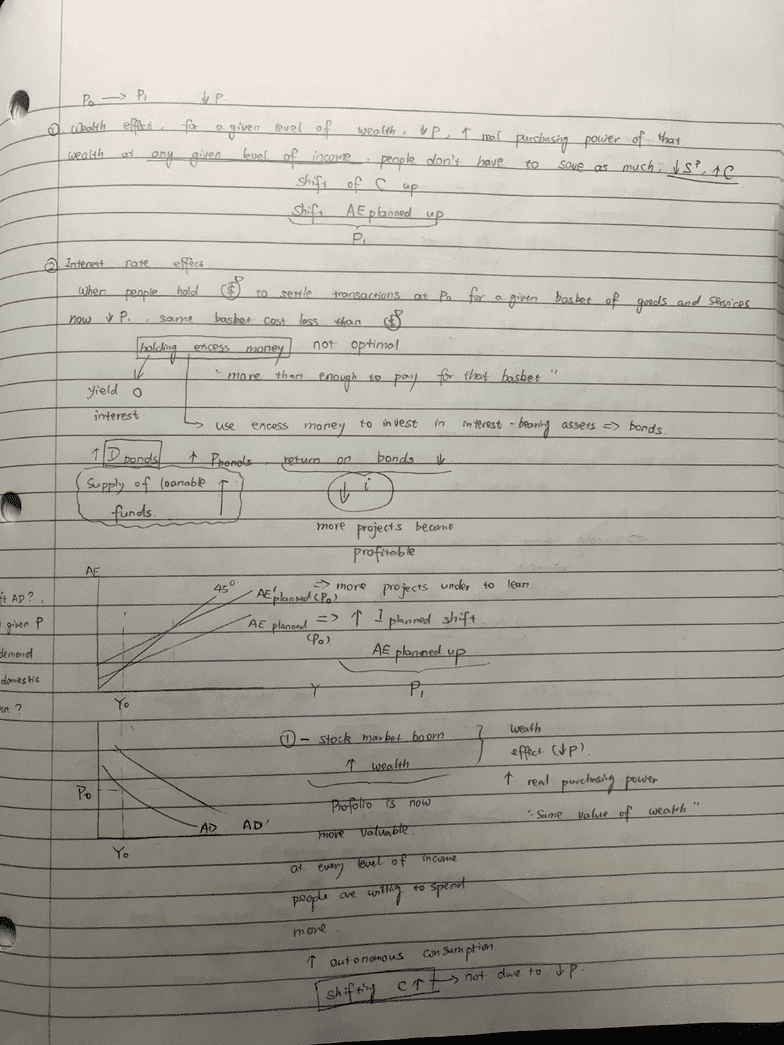 P₀ → P₁ ↓P.
① Wealth effect, for a given level of wealth, ↓P, ↑ real purchasing power of that
wealth at any given level of income, people don't have to save as much; ↓S?, ↑C
shift of C up
shift AE planned up
P₁
② Interest rate effect
when people hold ($) to settle transactions at P₀ for a given basket of goods and services
now ↓P., same basket cost less than ($)
holding excess money not optimal
"more than enough to pay for that basket"
yield 0
interest
use excess money to invest in interest-bearing assets => bonds.
↑ D bonds ↑ P bonds, return on bonds ↓
Supply of loanable ↑
funds.
↓ i
more projects become
profitable
AE
45°
AE'planned (P₀)
=> more projects under to lean
ft AD?,
given P
AE planned
(P₀)
=> ↑ I planned shift
demand
AE planned up
domestic
Y₀ Y P₁
put?
① - stock market boom
↑ wealth
weath
effect (↓P).
↑ real purchasing power
"Same value of wealth"
P₀
Profolio is now
AD AD'
more valuable.
Y₀
at every level of income
people are willing to spend
more.
↑ autonomous consumption
Shifting C↑ → not due to ↓P.